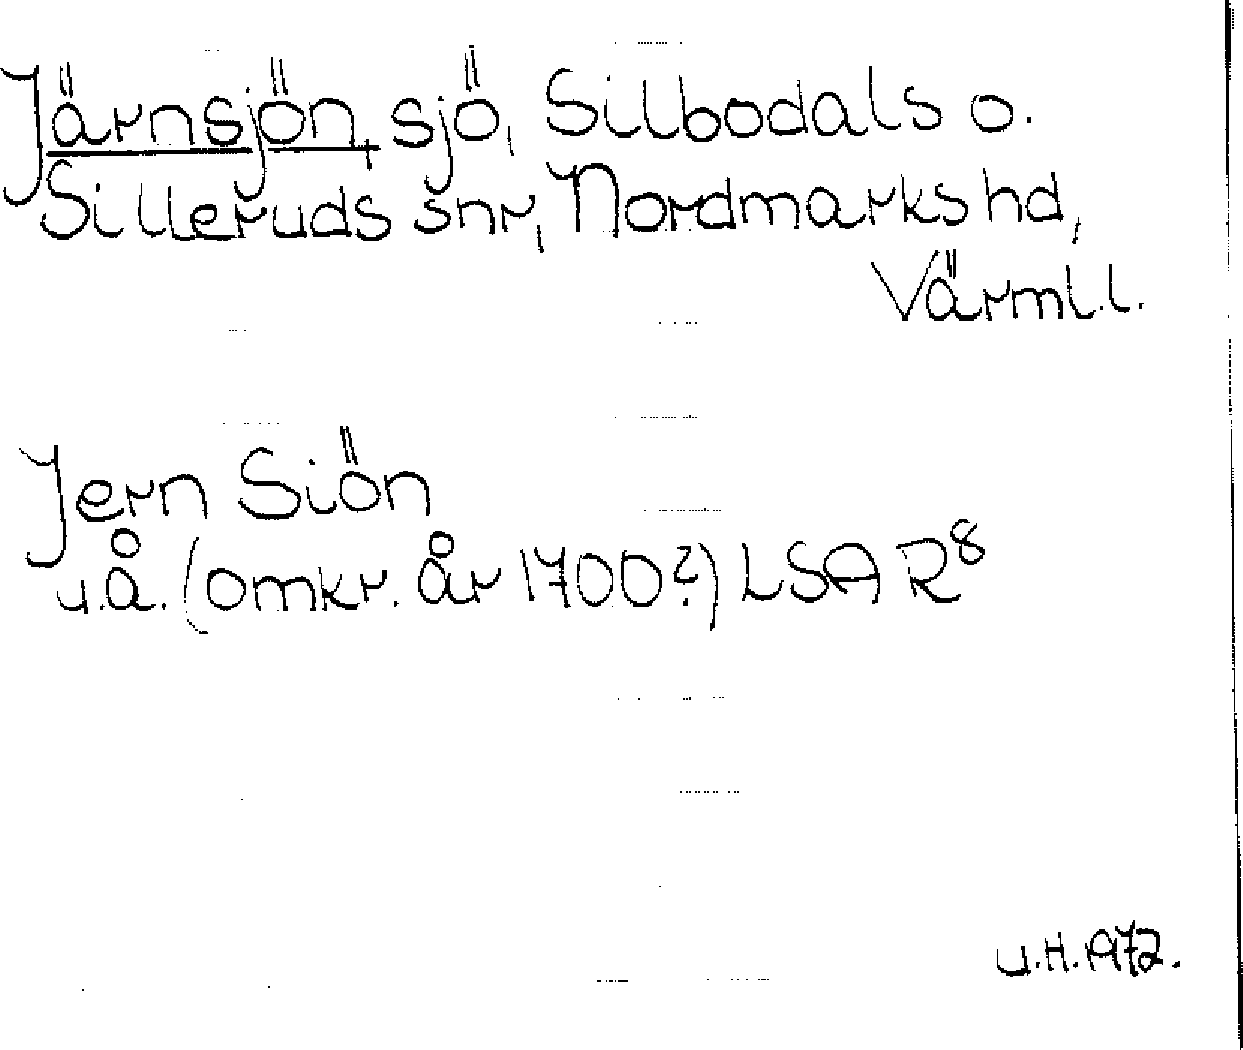 Järnsjön, sjö, Silbodals o.
Silleruds snr, Nordmarks hd,
Värml. l.
Jern Siön
u.å. (omkr. år 1700?) LSA R⁸
u.H. 1972.